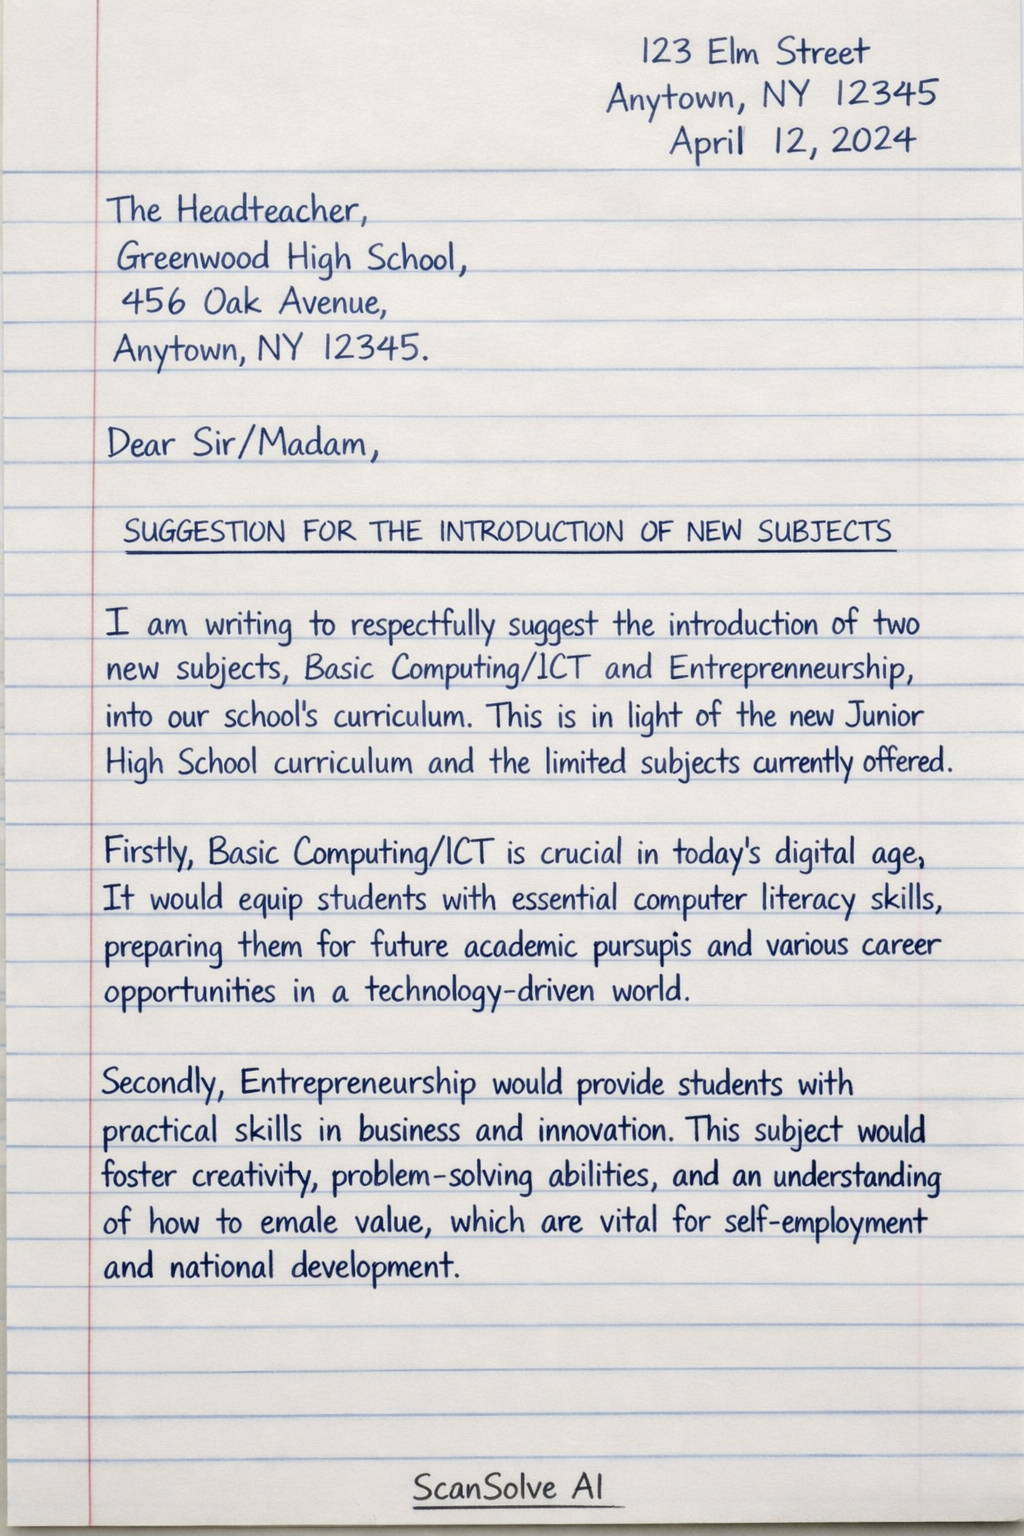 123 Elm Street
Anytown, NY 12345
April 12, 2024
The Headteacher,
Greenwood High School,
456 Oak Avenue,
Anytown, NY 12345.
Dear Sir/Madam,
SUGGESTION FOR THE INTRODUCTION OF NEW SUBJECTS
I am writing to respectfully suggest the introduction of two
new subjects, Basic Computing/ICT and Entreprenneurship,
into our school's curriculum. This is in light of the new Junior
High School curriculum and the limited subjects currently offered.
Firstly, Basic Computing/ICT is crucial in today's digital age,
It would equip students with essential computer literacy skills,
preparing them for future academic pursupis and various career
opportunities in a technology-driven world.
Secondly, Entrepreneurship would provide students with
practical skills in business and innovation. This subject would
foster creativity, problem-solving abilities, and an understanding
of how to emale value, which are vital for self-employment
and national development.
ScanSolve AI